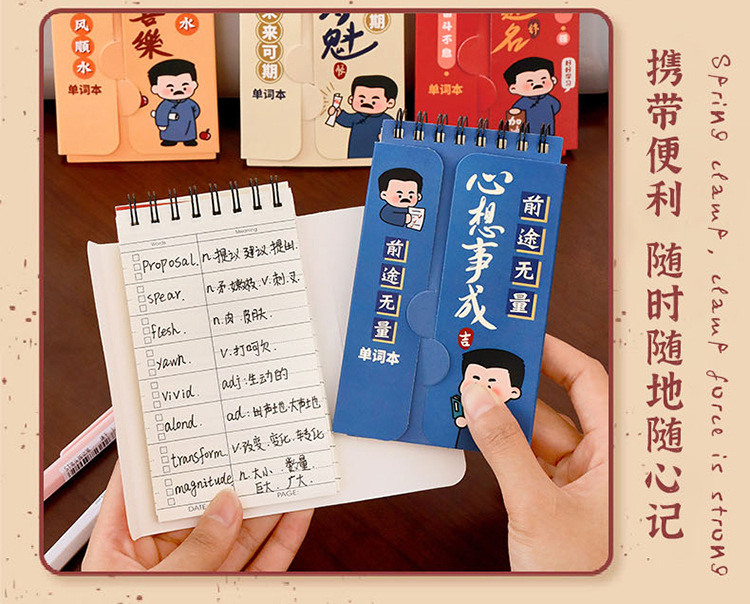 水
喜樂
风順水
单词本
来来可期
期
魁
单词本
奋斗不息
题名
好好学习
单词本
心想事成
前途无量
前途无量
吉
单词本
Words
Meaning
proposal.
n.提议 建议 提出
spear.
n.矛.嫩枝 v.刺.叉
flesh.
n.肉.皮肤
yawn.
v.打呵欠
vivid.
adj:生动的
alond.
ad:出声地.大声地
transform
v.改变.变化.转化
magnitude
n.大小. 数量.
巨大. 广大.
DATE
PAGE:
携带便利 随时随地随心记
Spring clamp, clamp force is strong